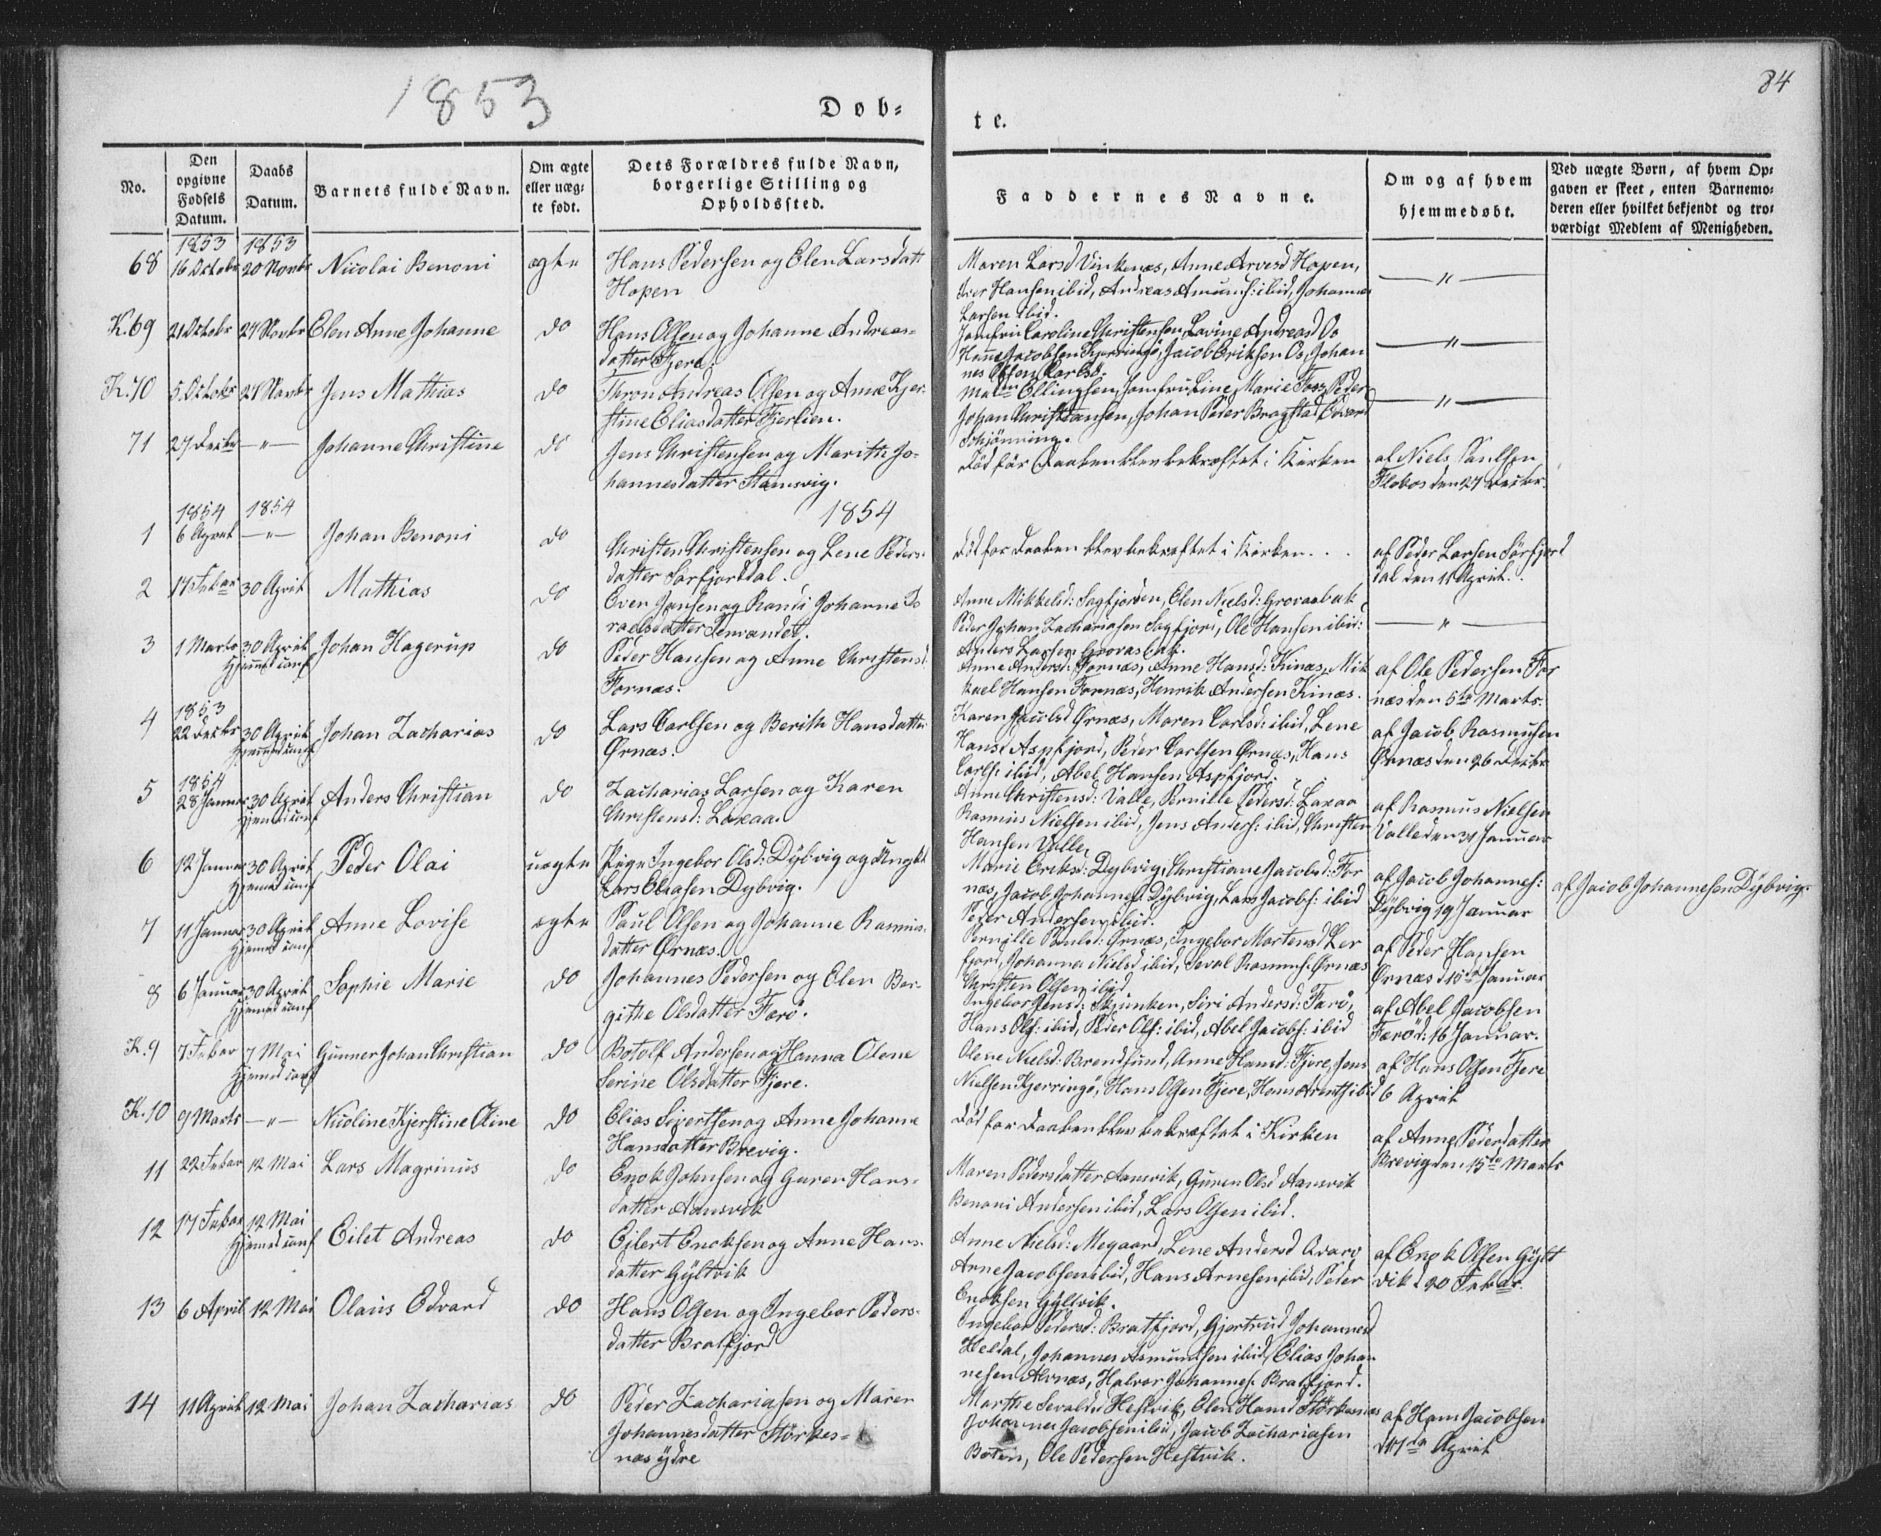 1853
84
Døb=
te.
No.
Den opgivne Fødsels Datum.
Daabs Datum.
Barnets fulde Navn.
Om ægte eller uægte født.
Dets Forældres fulde Navn, borgerlige Stilling og Opholdssted.
Faddernes Navne.
Om og af hvem hjemmedøbt.
Ved uægte Børn, af hvem Opgaven er skeet, enten Barnemoderen eller hvilket bekjendt og troværdigt Medlem af Menigheden.
1853 1853
68 16 Octobr 20 Novbr Nicolai Benoni ægte Hans Pedersen og Elen Larsdatt
Hopen
Maren Larsd Vinkenæs, Anne Arvesd Hopen,
Iver Hansen ibid, Andreas Amunds: ibid, Johannes
Larsen ibid.
— " —
K. 69 21 Octobr 27 Novbr Elen Anne Johanne do Hans Olsen og Johanne Andreas-
datter Fjere.
Jomfru Caroline Christensen, Lovine Andreasd Os
Hanne Jacobsen Kjerringø, Jacob Eriksen Os, Johan
— " —
K. 70 5 Octobr 27 Novbr Jens Mathias do Thron Andreas Olsen og Anne Kjer-
stine Eliasdatter Fjerlien.
Madm Ellingsen, Jomfru Line Marie Foss, Peder
Johan Christiansen, Johan Peder Brogstad, Edvard
Schjønning.
— " —
71 27 Decbr — " — Johanne Christine do Jens Christensen og Marith Jo-
hannesdatter Stamsvig.
Død før Daaben blev bekræftet i Kirken
af Niels Paulsen
Flobos den 27 Decbr.
1854 1854 1854
1 6 April — " — Johan Benoni do Christen Christensen og Lene Peders-
datter Sørfjorddal.
Død før Daaben blev bekræftet i Kirken . . .
af Peder Larsen Sørfjord
dal den 11 April.
2 17 Febar 30 April Mathias do Even Jensen og Randi Johanne Is
raelsdatter
Anne Mikkelsd: Sagfjorden, Elen Nielsd: Grovasbak
Peder Johan Zachariasen Sagfjord, Ole Hansen ibid:
Anders Larsen Grovasbak.
— " —
3 1 Marts 30 April Johan Hagerup do Peder Hansen og Anne Christensd:
Hjemmed conf
Fornæs.
Anne Andersd: Fornæs, Anne Hansd: Kinæs, Mik
kael Hansen Fornæs, Henrik Andersen Kinæs.
af Ole Pedersen For
næs den 5te Marts.
1853
4 22 Decbr 30 April Johan Zacharias do Lars Carlsen og Berith Hansdatter
Hjemmed conf
Ørnæs.
Karen Jacobsd Ørnæs, Maren Carlsd: ibid, Lene
Hansd Aspfjord, Peder Carlsen Ørnæs, Hans
Carls: ibid, Abel Hansen Aspfjord.
af Jacob Rasmusen
Ørnæs den 26 Decbr
1854
5 28 Januar 30 April Anders Christian do Zacharias Larsen og Karen
Hjemmed conf
Christensd: Laxaa.
Anne Christensd: Valle, Pernille Pedersd: Laxaa
Rasmus Nielsen ibid, Jens Anders: ibid, Christen
Hansen Valle.
af Rasmus Nielsen
Valle den 31 Januar
6 12 Januar 30 April Peder Olai uægte Pige Ingebor Olsd: Dybvig og Ungkl
Hjemmed conf
Lars Eliasen Dybvig.
Marie Eriksd: Dybvig, Christiane Jacobsd: For
næs, Jacob Johannes: Dybvig, Lars Jacobs: ibid
Peder Andersen ibid.
af Jacob Johannes:
Dybvig 19 Januar
af Jacob Johannesen Dybvig.
7 11 Januar 30 April Anne Lovise ægte Paul Olsen og Johanne Rasmus-
Hjemmed conf
datter Ørnæs.
Pernille Paulsd: Ørnæs, Ingebor Martensd Ler
fjord, Johanna Nielsd ibid, Seval Rasmus: Ørnæs
Christen Olsen ibid
af Peder Hansen
Ørnæs d 15de Januar
8 6 Januar 30 April Sophie Marie do Johannes Pedersen og Elen Ber-
Hjemmed conf
githe Olsdatter Færø.
Ingebor Jensd: Skjunken, Siri Andersd: Færø,
Hans Ols: ibid, Peder Ols: ibid, Abel Jacobs: ibid
af Abel Jacobsen
Færø d: 16 Januar.
K. 9 7 Febar 7 Mai Gunner Johan Christian do Botolf Andersen og Hanna Olene
Hjemmed conf
Serine Olsdatter Fjere.
Olene Nielsd: Brendsund, Anne Hansd: Fjere, Jens
Nielsen Kjerringø, Hans Olsen Fjere, Hans Arents ibid
af Hans Olsen Fjere
6 April
K. 10 9 Marts — " — Nicoline Kjerstine Oline do Elias Sivertsen og Anne Johanne
Hansdatter Brevig.
Død før Daaben blev bekræftet i Kirken
af Anne Pedersdatter
Brevig den 15de Marts
11 22 Febar 12 Mai Lars Magrinus do Enok Johnsen og Guren Hans-
datter Aamsvik
Maren Pedersdatter Aamsvik, Guren Olsd Aamsvik
Benoni Andersen ibid, Lars Olsen ibid.
12 17 Febar 12 Mai Eilet Andreas do Eilert Enoksen og Anne Hans-
Hjemmed conf
datter Gyltvik
Anne Nielsd: Megaard, Lene Andersd Qvarv
Arne Jacobsen ibid, Hans Arnesen ibid, Peder
Enoksen Gyltvik.
af Enok Olsen Gylt
vik d 20 Febar.
13 6 April 12 Mai Olaus Edvard do Hans Olsen og Ingebor Peders-
datter Bratfjord
Ingebor Pedersd: Bratfjord, Gjertrud Johannesd
Heldal, Johannes Asmundsen ibid, Elias Johan
nesen Alvnæs, Halvor Johannes: Bratfjord.
14 11 April 12 Mai Johan Zacharias do Peder Zachariasen og Maren
Johannesdatter Størkes-
næs ydre
Marthe Sevaldsd Hestvik, Elen Hansd Størkesnæs
Johannes Jacobsen ibid, Jacob Zachariasen
Boten, Ole Pedersen Hestvik.
af Hans Jacobsen
d 17de April